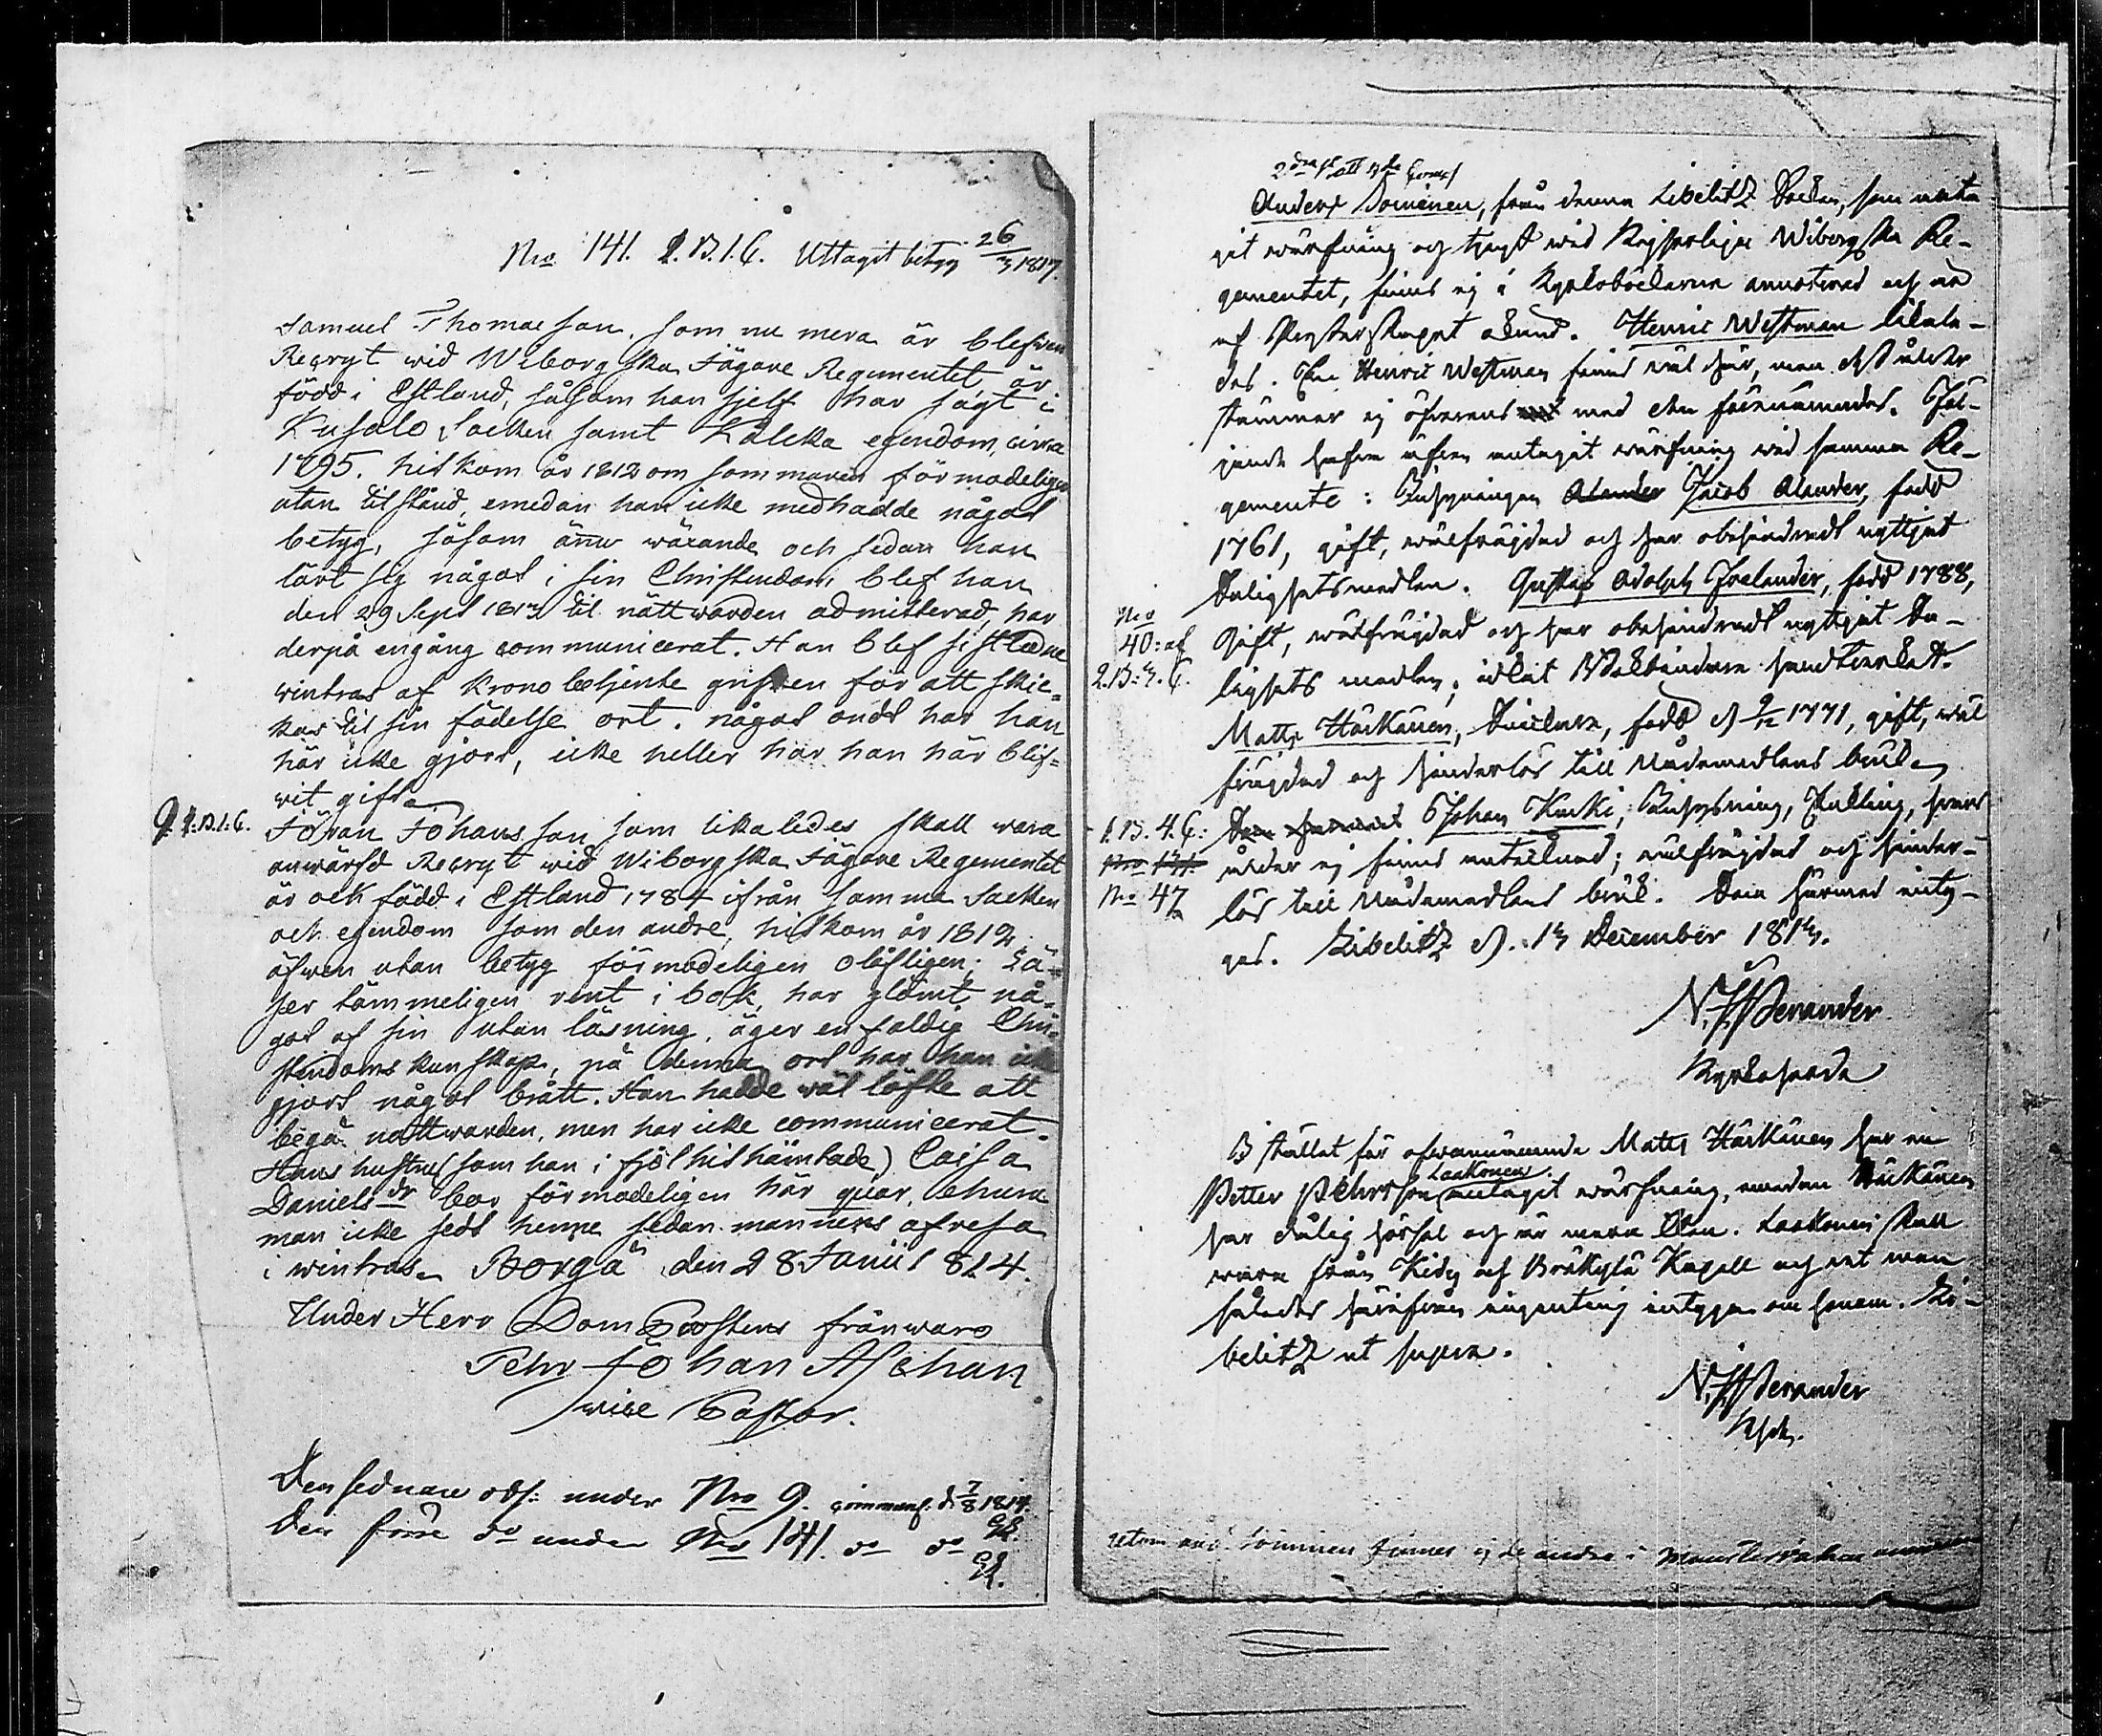 Nro 141. 1.B.1.C. Uttagit betyg 26/3 1817.
Samuel Thomasson, som nu mera är blefwen
Recryt wid Wiborgska Jägare Regementet är
född i Estland, såsom han sjelf har sagt i
Kusalo Socken samt Kålcka egendom, circa
1795. hitkom år 1812 om sommaren förmodeligen
utan tilstånd, emedan han icke medhadde något
betyg, såsom ännu warande och sedan han
lärt sig något i sin Christendom blef han
den 29 Sept 1813 til nattwarden admitterad, har
derpå engång communicerat. Han blef sistledne
wintras af Krono betjente gripen för att skic-
kas til sin födelse ort. något ondt har han
här icke gjort, icke heller har han här blif-
wit gift.
9. 1.B.1.C.
Jöran Johansson som likaledes skall wara
anwärfd Recryt wid Wiborgska Jägare Regementet
är ock född i Estland 1784 ifrån samma Socken
och egendom som den andre, hitkom år 1812
äfwen utan betyg förmodeligen olofligen; Lä-
ser tämmeligen rent i bok, har glömt nå-
got af sin utan läsning, äger enfaldig Chri-
stendoms kunskap, på denna ort har han icke
gjort något brått. Han hadde wäl löfte att
begå nattwarden, men har icke communicerat.
Hans hustru (som han i fjol hithämtade) Caisa
Daniels dr bor förmodeligen här quar, ehuru
man icke sedt henne sedan mannens afresa
i wintras. Borgå den 28 Junii 1814.
Under Herr DomProstens frånwaro
Pehr Johan Alehan
wice Pastor.
Den sednare obs: under Nro 9. commun: d. 7/8 1814.
Den förre do under Nro 141. do do
Anders Sominen, från denna Libelitz Socken, som anta-
git wärfning och tjenst wid Kejserliga Wiborgska Re-
gementet, finns ej i Kyrkoböckerna annoterad och är
af Presterskapet okänd. Henric Westman likale-
des. En Henric Westman finns wäl här, men dess ålder
stämmer ej öfverens med den förenämndes. Föl-
jande hafva äfven antagit wärfning wid samma Re-
gemente: Inhysningen Jacob Alander, född
1761, gift, wälfräjdad och har obehindradt nyttjat
Salighetsmedlen. Gustaf Adolph Joelander, född 1788,
Nro
40: af
2.B:3.C.
Gift, wälfräjdad och har obehindradt nyttjat Sa-
lighets medlen;
Matts Härkänen, född d 9/12 1771, gift, wäl
fräjdad och hinderlös till Nådemedlens bruk
1.B.4.C:
Nro 171.
No 47
Johan Kurki; Inhysning, Enkling, hwars
ålder ej finns antecknad; wälfräjdad och hinder-
lös till Nådemedlens bruk. Som härmed inty-
gas. Libelitz d. 13 December 1813.
N. J. Perander
Kyrkoherde
I stället för ofvannämnde Matts Härkänen har en
Petter Pehrsson Laakonen antagit wärfning, emedan Härkänen
har dålig hörsel och är mera Laakonen skall
wara från Kides och Bräkylä Kapell och wet man
således härifrån ingenting intyga om honom. Li-
belitz ut supra.
N. J. Perander
Khde.